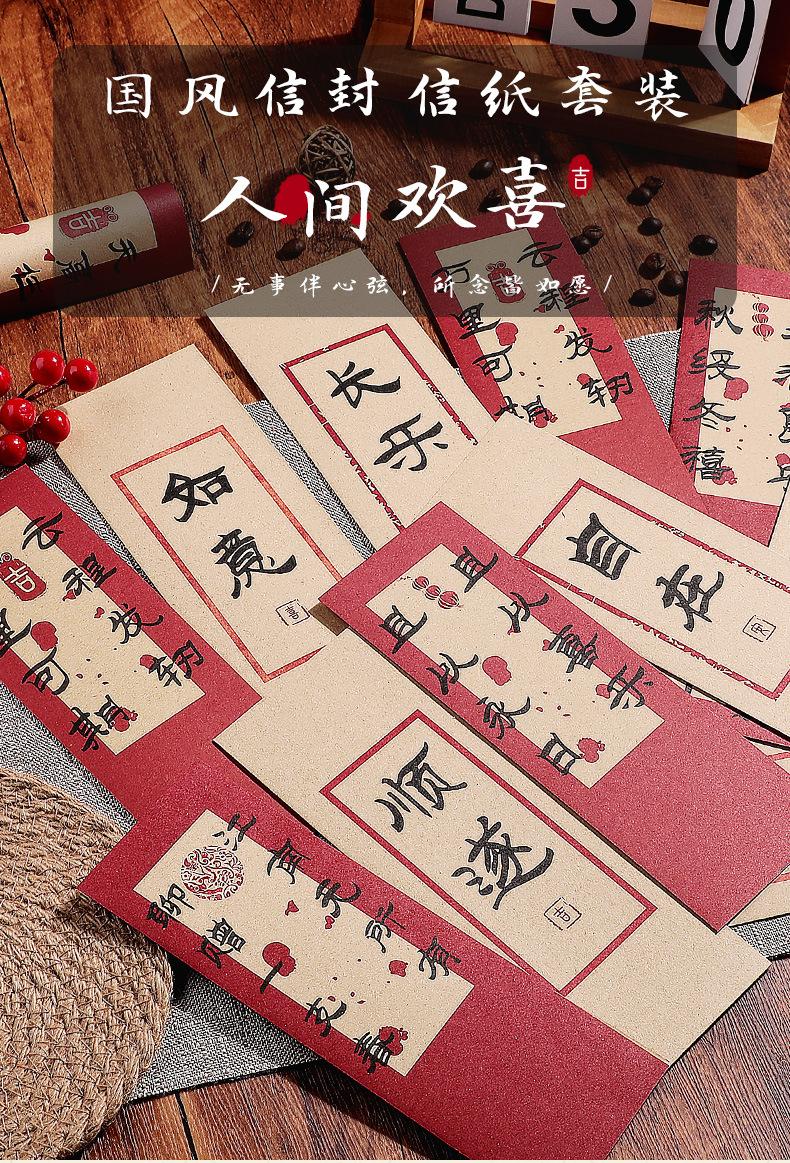 国风信封 信纸套装
人间欢喜
吉
/无事伴心弦，所念皆如愿/
吉
长乐
云程发轫
万里可期
秋绥冬禧
如意
喜
自在
云程发轫
吉
里可期
且以喜乐
且以永日
顺遂
吉
江南无所有
聊赠一支春